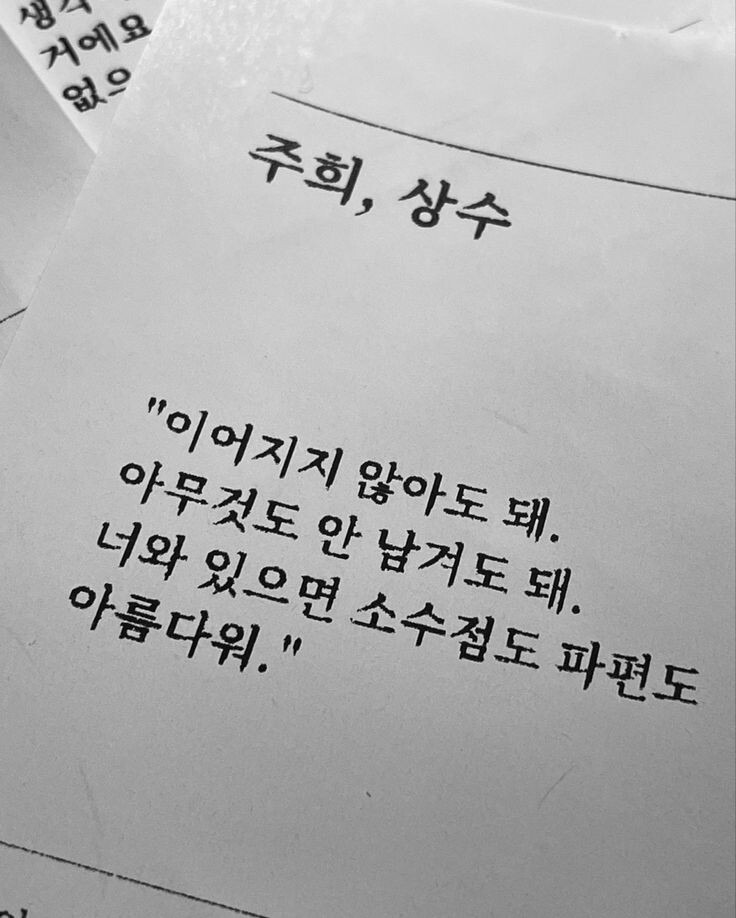 거에요
주희, 상수
"이어지지 않아도 돼.
아무것도 안 남겨도 돼.
너와 있으면 소수점도 파편도
아름다워."